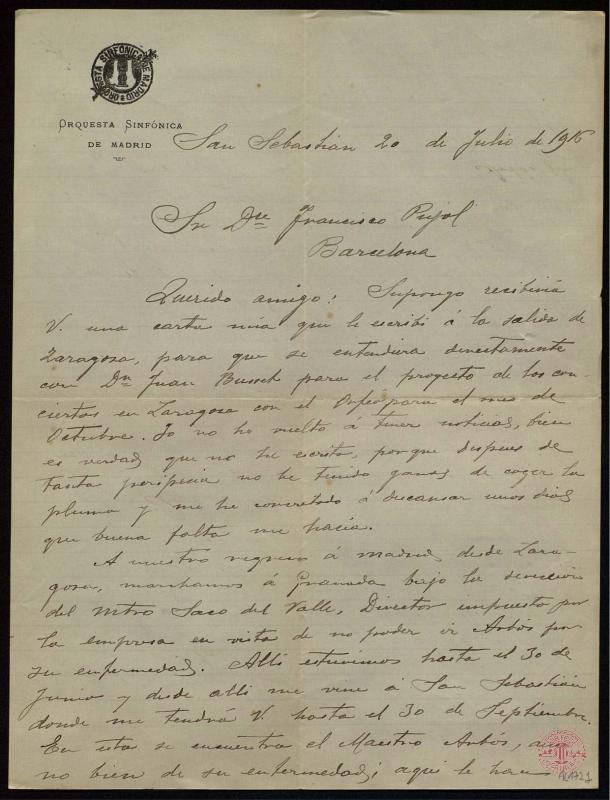 ORQUESTA SINFÓNICA DE MADRID
ORQUESTA SINFÓNICA
DE MADRID
San Sebastian 20 de Julio de 1916
Sr Dn Francisco Pujol
Barcelona
Querido amigo: Supongo recibiría
V. una carta mia que le escribí á la salida de
Zaragoza, para que se entendiera directamente
con Dn Juan para el proyecto de los con-
ciertos en Zaragoza con el Orfeo para el mes de
Octubre. Yo no he vuelto á tener noticias, bien
es verdad que no he escrito, porque despues de
tanta peripecia no he tenido ganas de coger la
pluma y me he concretado á descansar unos dias
que buena falta me hacía.
A nuestro regreso á Madrid desde Zara-
goza, marchamos á Granada bajo la dirección
del Mtro Saco del Valle, Director impuesto por
la empresa en vista de no poder ir Arbós por
su enfermedad. Allí estuvimos hasta el 30 de
Junio y desde allí me vine á San Sebastián
donde me tendrá V. hasta el 30 de Septiembre.
En esta se encuentra el Maestro Arbós, aun
no bien de su enfermedad; aqui le han